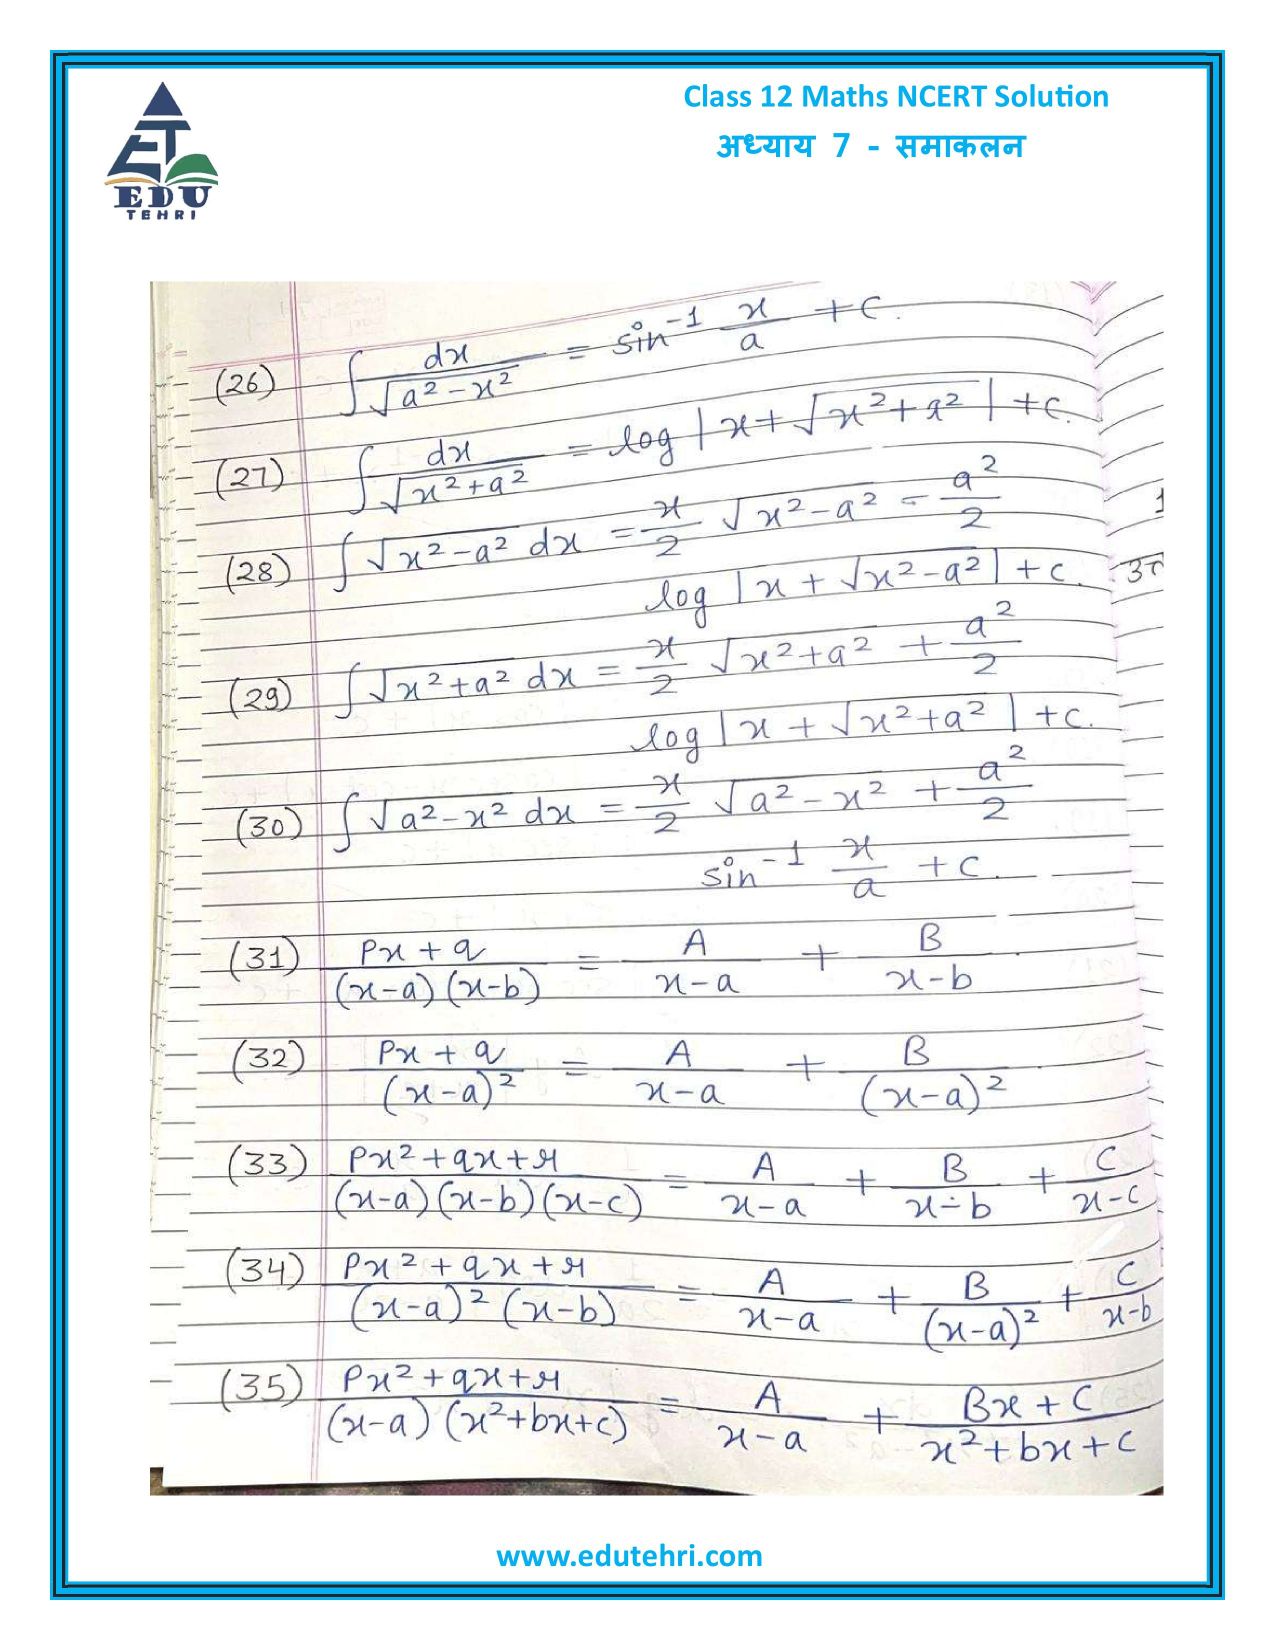 Class 12 Maths NCERT Solution
अध्याय 7 - समाकलन
EDU
TEHRI
(26) ∫ dx/√(a² - x²) = sin⁻¹ x/a + c.
(27) ∫ dx/√(x² + a²) = log |x + √(x² + a²)| + c.
(28) ∫ √(x² - a²) dx = x/2 √(x² - a²) - a²/2
log |x + √(x² - a²)| + c.
(29) ∫ √(x² + a²) dx = x/2 √(x² + a²) + a²/2
log |x + √(x² + a²)| + c.
(30) ∫ √(a² - x²) dx = x/2 √(a² - x²) + a²/2
sin⁻¹ x/a + c.
(31) (Px + q)/((x-a)(x-b)) = A/(x-a) + B/(x-b)
(32) (Px + q)/(x-a)² = A/(x-a) + B/(x-a)²
(33) (Px² + qx + r)/((x-a)(x-b)(x-c)) = A/(x-a) + B/(x-b) + C/(x-c)
(34) (Px² + qx + r)/((x-a)²(x-b)) = A/(x-a) + B/(x-a)² + C/(x-b)
(35) (Px² + qx + r)/((x-a)(x²+bx+c)) = A/(x-a) + (Bx + C)/(x²+bx+c)
www.edutehri.com